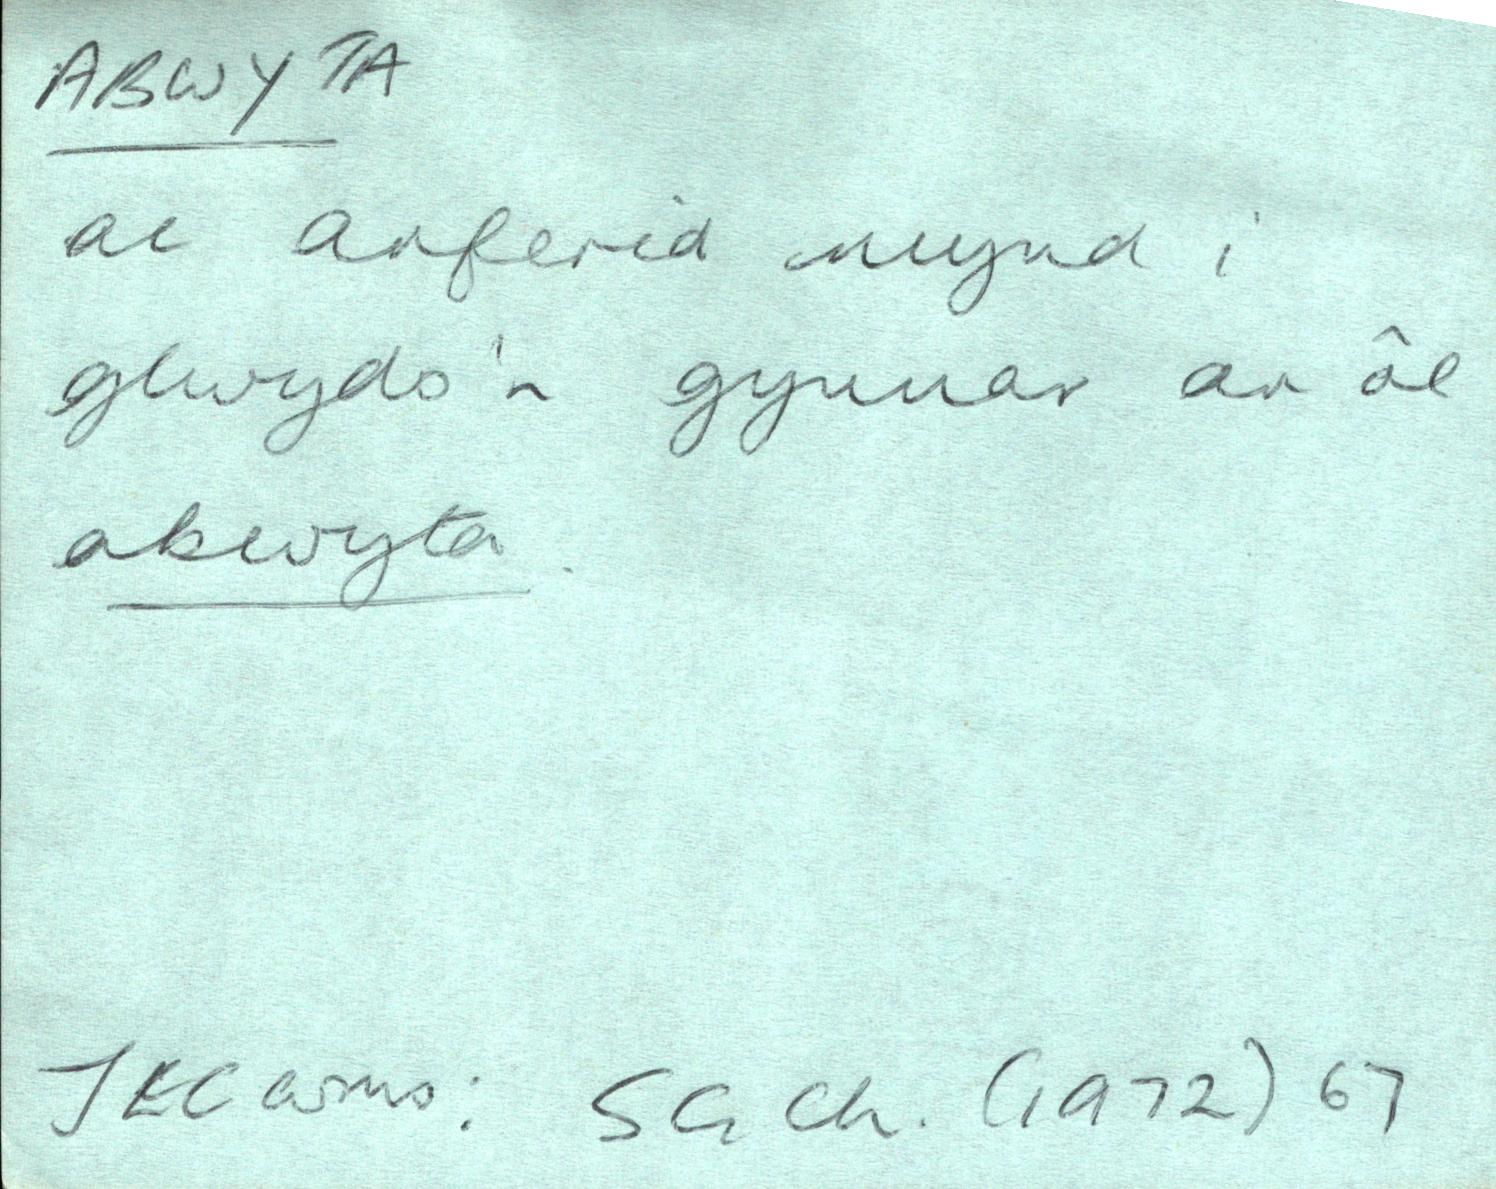 ABWYTA
ac arferid mynd i
glwydo'n gynnar ar ôl
abwyta.
JECWms: SGCh. (1972) 67